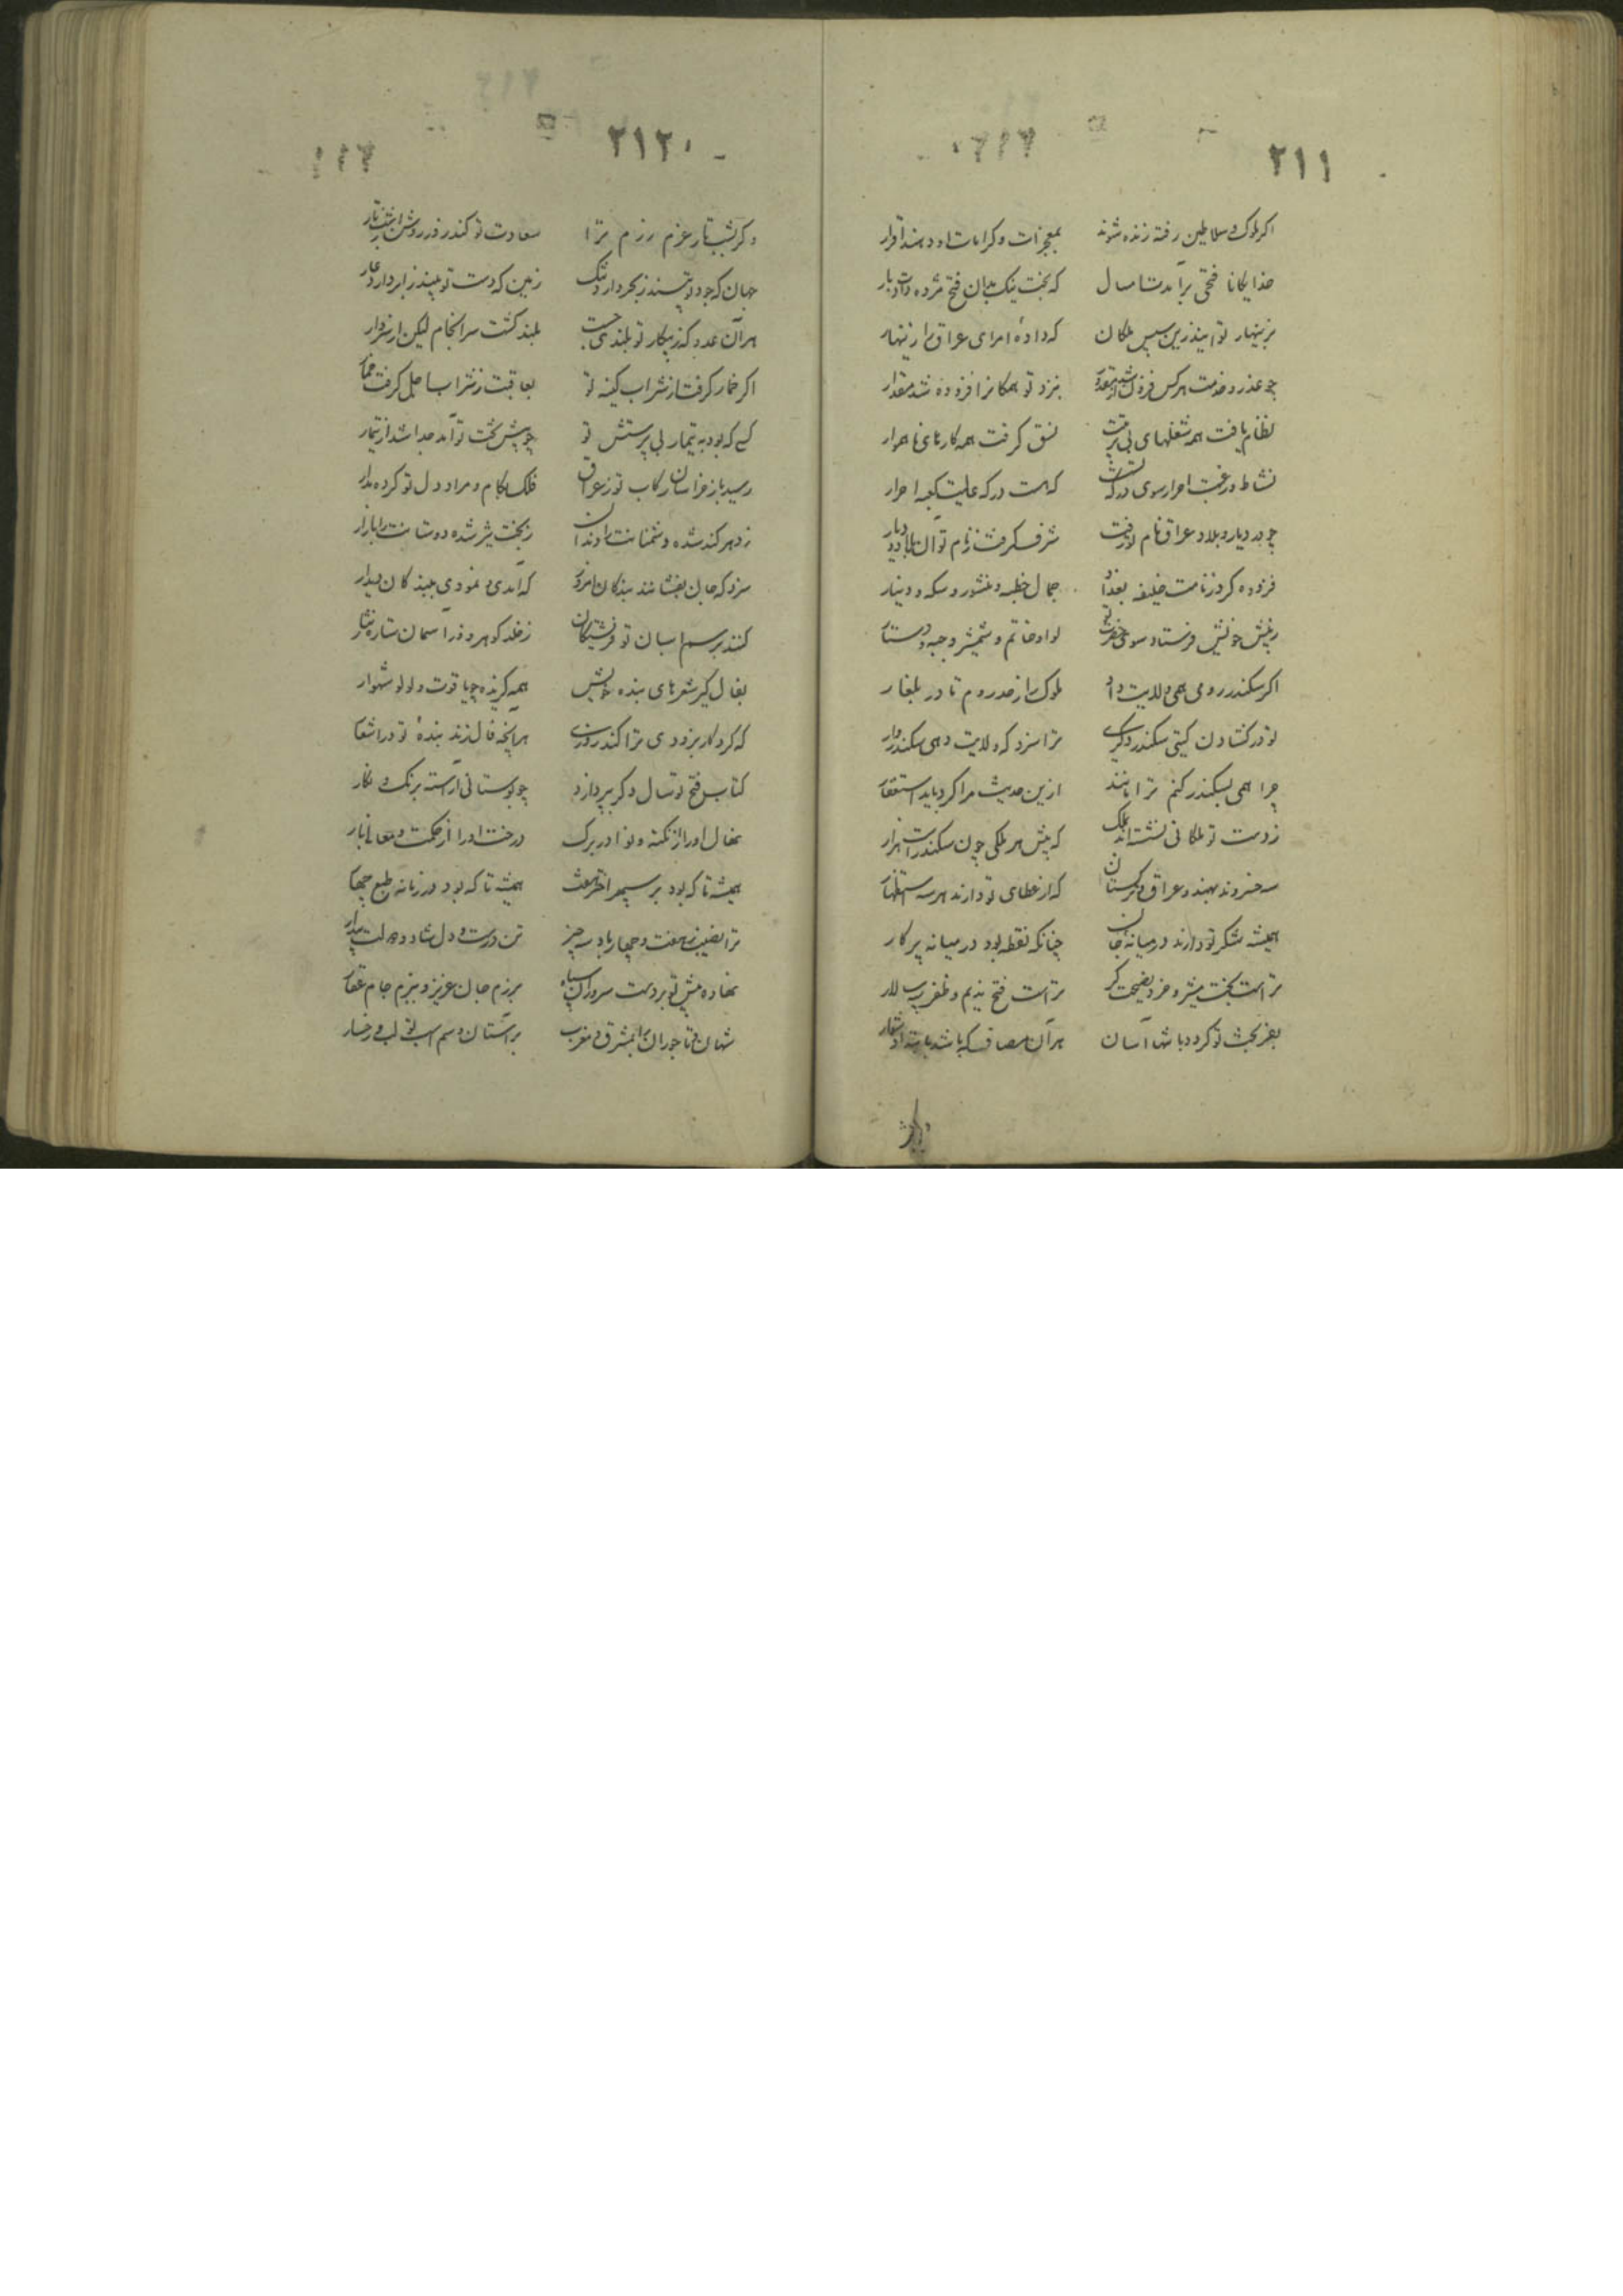 ۲۱۱
اگر ملوک و سلاطین رفته زنده شوند بمعجزات و کرامات او دهند اقرار
خدایگانا فتحی برآمدت امسال که بخت نیک بدان فتح مژده داد
بزینهار تو آیند زین سپس ملکان که داده امرای عراق را زینهار
چو عذر و خدمت هرکس فزون نزد تو همکانرا فزوده شد مقدار
نظام یافت همه شغلهای بی ترتیب نسق گرفت همه کارهای ناهموار
نشاط و رغبت احرار سوی درگه تست که هست درگه عالیت کعبه احرار
چو در دیار و بلاد عراق نام تو رفت شرف گرفت ز نام تو آن بلاد و دیار
فزوده کرد ز نامت خلیفه بغداد جمال خطبه و منشور و سکه و دینار
ز پیش خویش فرستاد سوی حضرت تو لوا و خاتم و شمشیر و جبه و دستار
اگر سکندر رومی همی ولایت داد ملوک را ز در روم تا در بلغار
تو در گشادن گیتی سکندر دگری ترا سزد که ولایت دهی سکندروار
چرا همی بسکندر کنم ترا مانند ازین حدیث مرا کرد باید استغفار
ز دست تو ملکانی نشسته اند بملک که پیش هر ملکی چون سکندرست هزار
سه خسروند بهند و عراق و ترکستان که از عطای تو دارند هر سه استظهار
همیشه شکر تو دارند در میانه جان چنانکه نقطه بود در میانه پرگار
تراست بخت مبشر و خرد نصیحت گر تراست فتح ندیم و ظفر سپه سالار
بفر بخت تو گردد باشها آسان هر آن مصاف که باشد دشوار
۲۱۲
وگر شب تار عزم رزم ترا سعادت تو کند روز روشن آن شب تار
جهان که جود تو بیند ز بحر دارد ننگ زمین که دست تو بیند ز ابر دارد عار
هر آن عدو که ز پیکار تو بلندی جست بلند گشت سرانجام لیکن از سر دار
اگر خمار گرفت از شراب کینه تو بعاقبت ز شراب اجل گرفت خمار
کسی که بود به تیمار بی پرستش تو چو پیش تخت تو آمد جدا شد از تیمار
رسید باز خراسان رکاب تو ز عراق فلک بکام و مراد دل تو کرده مدار
ز دهر کند شده دشمنانت را دندان ز بخت تیز شده دوستانت را بازار
سزد که جان بفشانند بندگان امروز که آمدی و نمودی ببندگان دیدار
کنند بر سم اسبان تو فرشتگان ز خلد گوهر و از آسمان ستاره نثار
بفال گیر شعرهای بنده خویش همه گزیده چو یاقوت و لولو شهوار
که کردگار بزودی ترا کند روزی هر آنچه فال زند بنده تو در اشعار
کتاب فتح تو سال دگر بپردازد چو بوستانی آراسته برنگ و نگار
نهال او را از نکته و نوادر برگ درخت او را از حکمت و معانی بار
همیشه تا که بود بر سپهر اختر هفت همیشه تا که بود در زمانه طبع چهار
ترا نصیب ز هفت و چهار باد سه چیز تن درست و دل شاد و دولت بیدار
نهاده پیش تو بر دست سروران سپاه برزم جان عزیز و ببزم جام عقار
شهان و تاجوران را بمشرق و مغرب بر آستان و سم اسب تو لب و رخسار